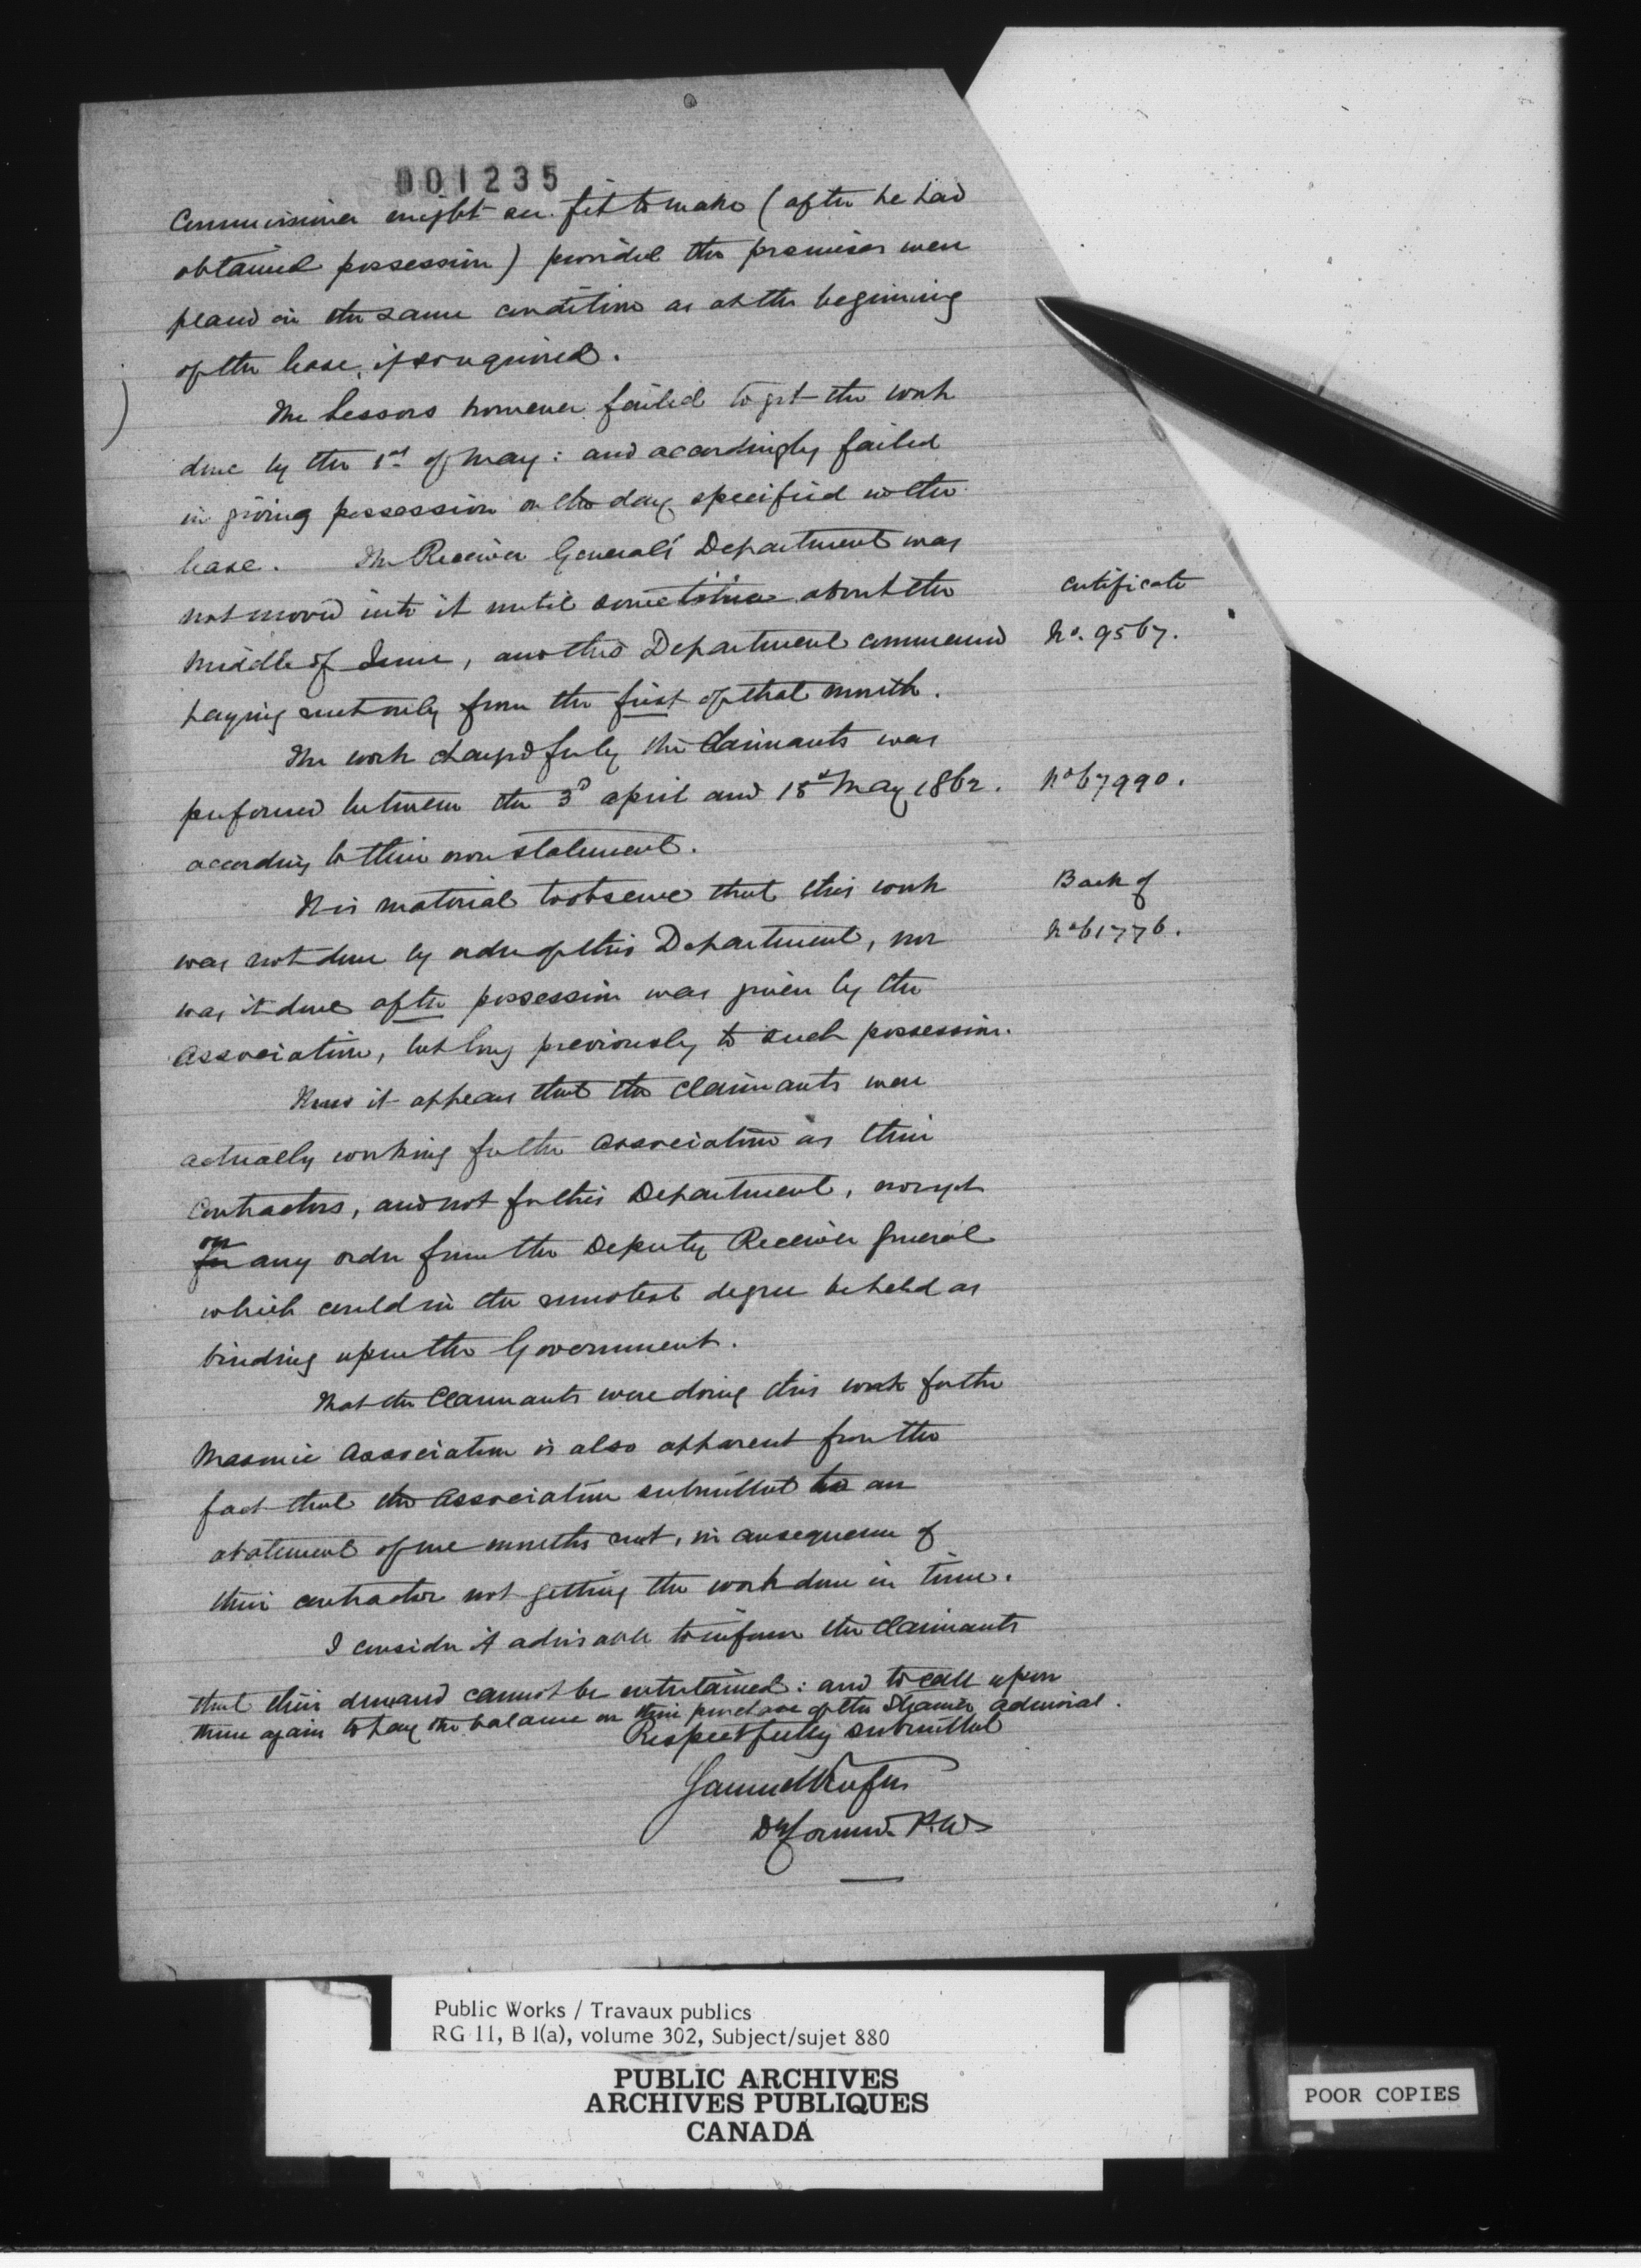 001235
Commissioner might see fit to make (after he had
obtained possession) provided the premises were
placed in the same condition as at the beginning
of the lease, if so required.
The Lessors however failed to get the work
done by the 1st of May: and accordingly failed
in giving possession on the day specified in the
lease. The Receiver General's Department was
not moved into it until sometime about the
Certificate
middle of June, and this Department commenced
No. 9567.
paying rent only from the first of that month.
The work charged for by the Claimants was
performed between the 3d April and 15th May 1862.
No 67990.
according to their own statement.
It is material to observe that this work
Back of
was not done by order of this Department, nor
No 61776.
was it done after possession was given by the
Association, but long previously to such possession.
Thus it appears that the Claimants were
actually working for the Association as their
Contractors, and not for this Department, nor yet
on
for any order from the Deputy Receiver General
which could in the remotest degree be held as
binding upon the Government.
That the Claimants were doing this work for the
Masonic Association is also apparent from the
fact that the Association submitted to an
abatement of one months rent, in consequence of
their contractor not getting the work done in time.
I consider it advisable to inform the Claimants
that their demand cannot be entertained: and to call upon
them again to pay the balance on their purchase of the Steamer Admiral.
Respectfully submitted
Samuel Keefer
Dy Commr. P.W.
Public Works / Travaux publics
RG 11, B 1(a), volume 302, Subject/sujet 880
PUBLIC ARCHIVES
ARCHIVES PUBLIQUES
CANADA
POOR COPIES